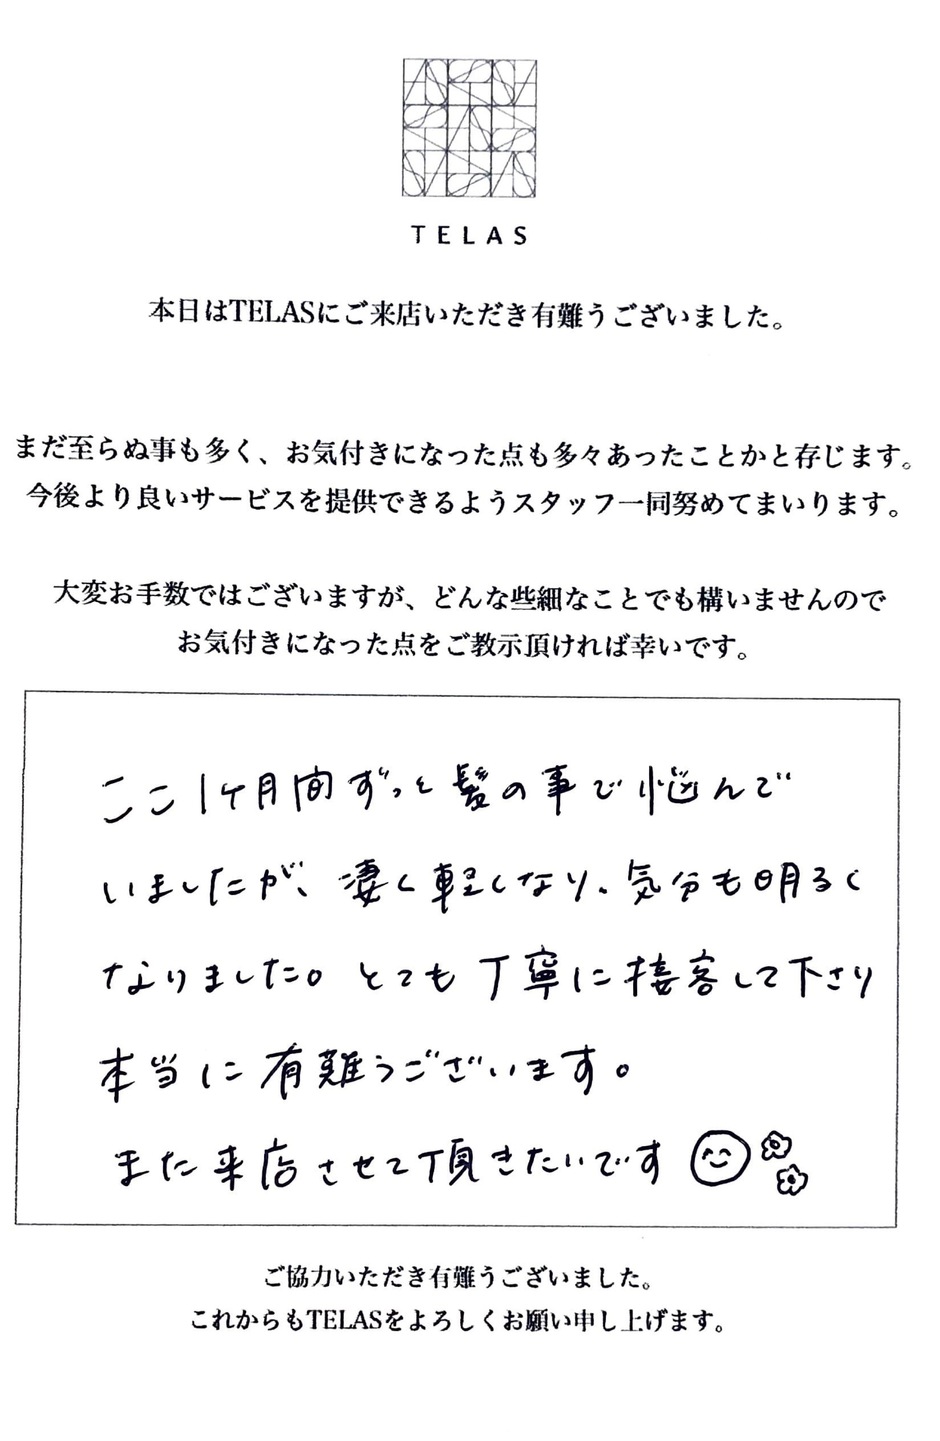 TELAS
本日はTELASにご来店いただき有難うございました。
まだ至らぬ事も多く、お気付きになった点も多々あったことかと存じます。
今後より良いサービスを提供できるようスタッフ一同努めてまいります。
大変お手数ではございますが、どんな些細なことでも構いませんので
お気付きになった点をご教示頂ければ幸いです。
ここ1ケ月間ずっと髪の事で悩んで
いましたが、凄く軽くなり、気分も明るく
なりました。とても丁寧に接客して下さり
本当に有難うございます。
また来店させて頂きたいです
ご協力いただき有難うございました。
これからもTELASをよろしくお願い申し上げます。